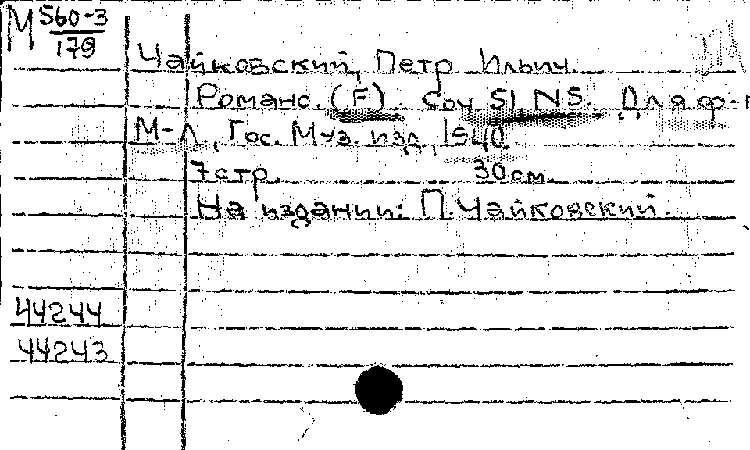 М 560-3
179
Чайковский, Петр Ильич.
Романс. (F). Соч 51 N5. Для ф-п
М-Л, Гос. Муз. изд, 1940.
7 стр. 30 см.
На издании: П. Чайковский.
44244
44243